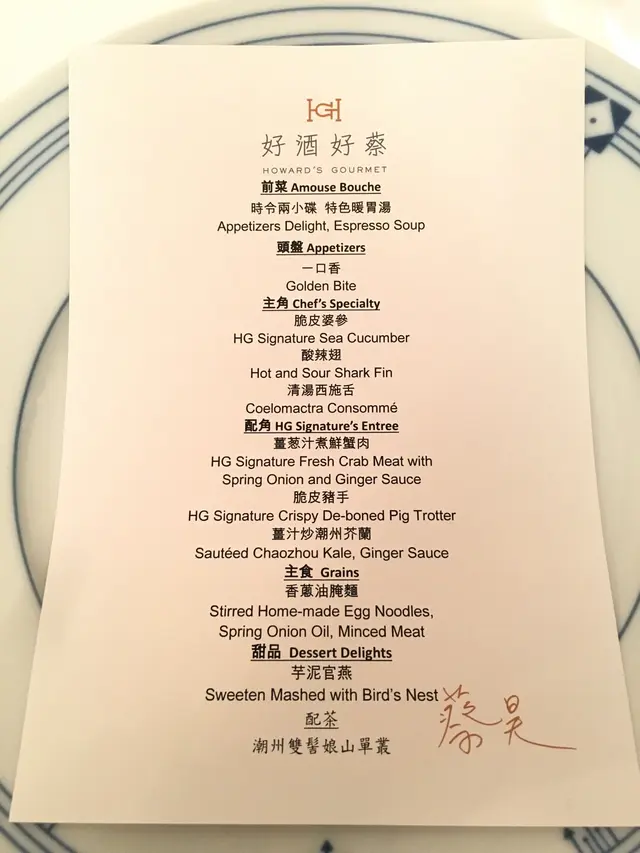 HG
好酒好蔡
HOWARD'S GOURMET
前菜 Amouse Bouche
時令兩小碟 特色暖胃湯
Appetizers Delight, Espresso Soup
頭盤 Appetizers
一口香
Golden Bite
主角 Chef's Specialty
脆皮婆參
HG Signature Sea Cucumber
酸辣翅
Hot and Sour Shark Fin
清湯西施舌
Coelomactra Consommé
配角 HG Signature's Entree
薑葱汁煮鮮蟹肉
HG Signature Fresh Crab Meat with
Spring Onion and Ginger Sauce
脆皮豬手
HG Signature Crispy De-boned Pig Trotter
薑汁炒潮州芥蘭
Sautéed Chaozhou Kale, Ginger Sauce
主食 Grains
香蔥油腌麵
Stirred Home-made Egg Noodles,
Spring Onion Oil, Minced Meat
甜品 Dessert Delights
芋泥官燕
Sweeten Mashed with Bird's Nest
配茶
潮州雙髻娘山單叢
蔡昊